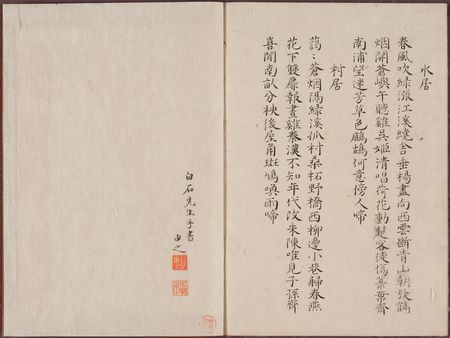 水居
春風吹綠漲江溪繞舍垂楊盡向西雲斷青山朝放鶴
烟開蒼嶼午聽雞吳姬清唱荷花動楚客徒傷蕙葉齊
南浦望迷芳草色鷓鴣何意傍人啼
村居
蒼烟隔綠溪孤村桑柘野橋西柳邊小巷歸春燕
花下雙扉報晝雞秦漢不知年代改朱陳唯見子孫齊
喜聞南畝分秧後屋角斑鳩喚雨啼
白石先生手書
由之